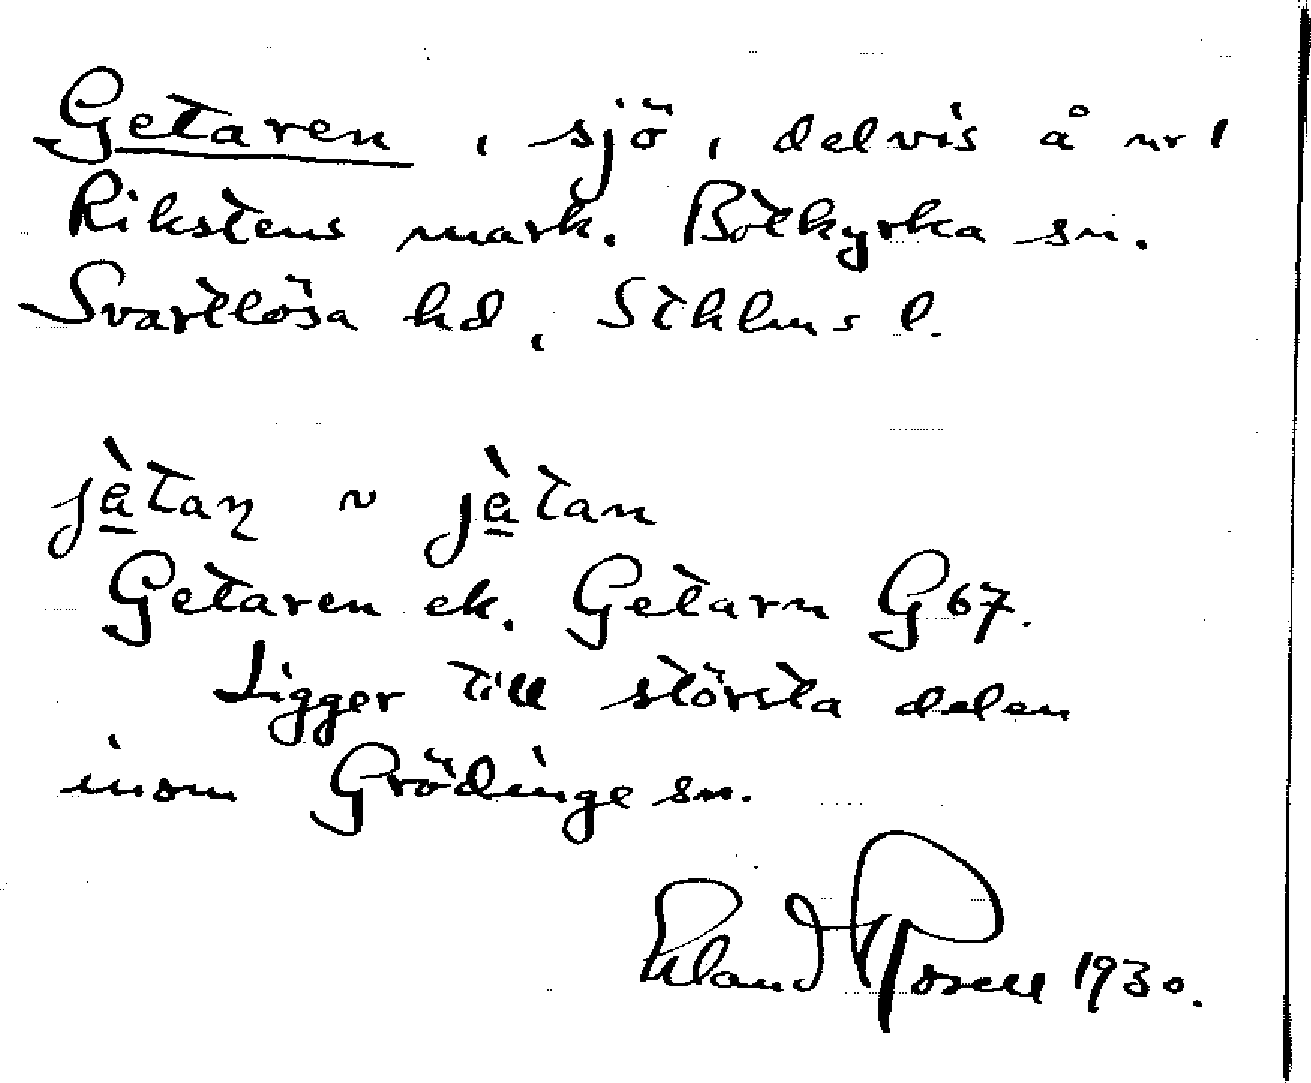 Getaren, sjö, delvis å nr 1
Rikstens mark. Botkyrka sn.
Svartlösa hd, Sthlms l.
jè̲taɳ ~ jè̲tan
Getaren ek. Getarn G 67.
Ligger till största delen
inom Grödinge sn.
Erland Rosell 1930.